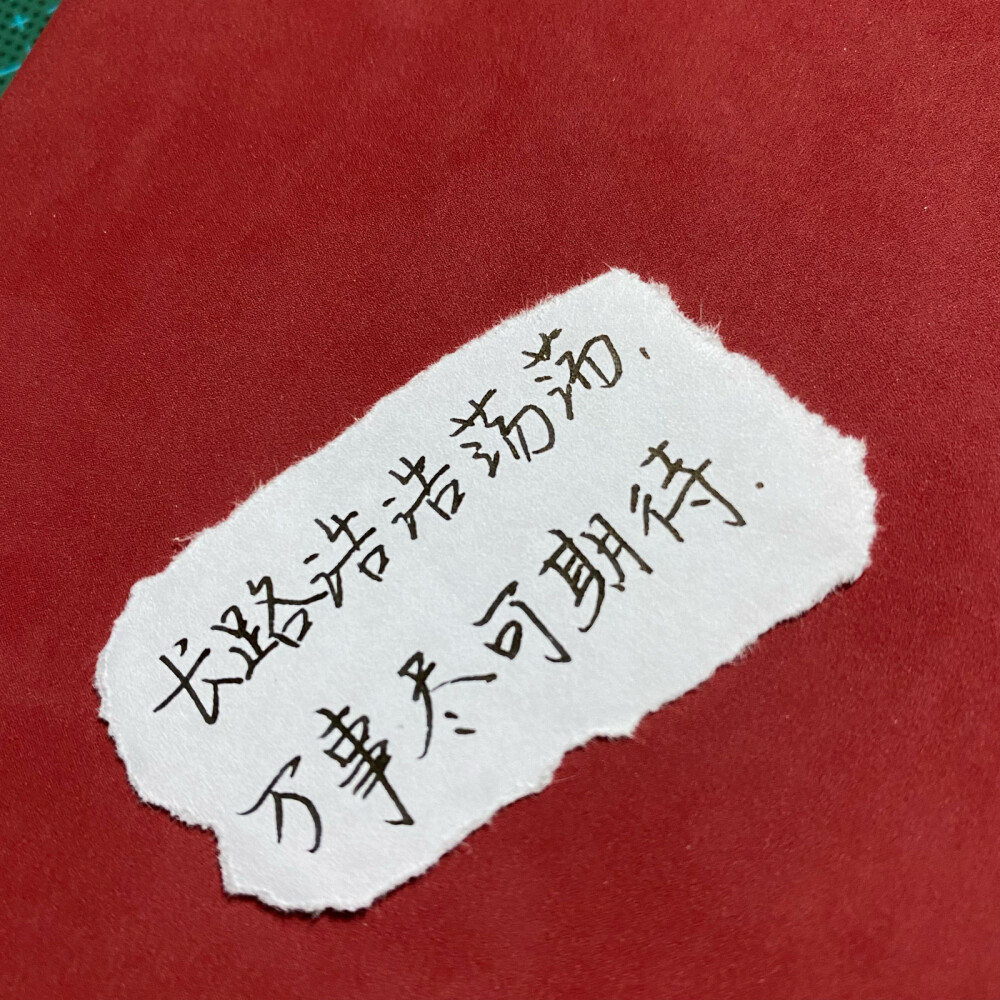 长路浩浩荡荡.
万事尽可期待.